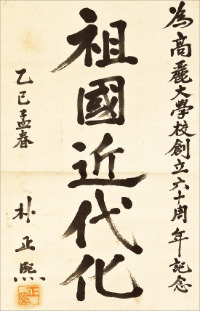 為高麗大學校創立六十周年記念
祖國近代化
乙巳孟春
朴正熙